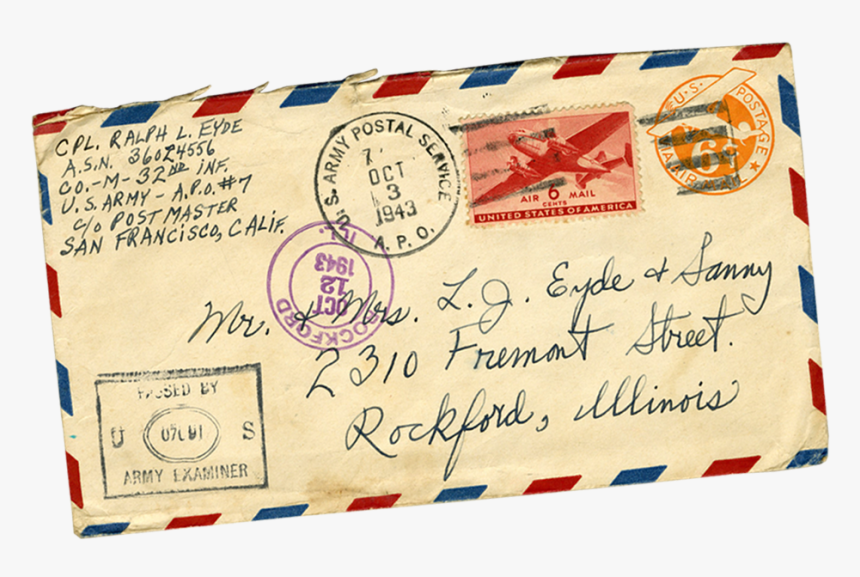 CPL. RALPH L. EYDE
A.S.N. 36024556
CO.-M-32ND INF.
U.S. ARMY - A.P.O. #7
c/o POSTMASTER
SAN FRANCISCO, CALIF.
U.S. ARMY POSTAL SERVICE
OCT
3
1943
A.P.O.
AIR 6 MAIL
CENTS
UNITED STATES OF AMERICA
U.S. POSTAGE
6¢
ROCKFORD
OCT
12
1943
Mr. & Mrs. L. J. Eyde & Sanny
2310 Fremont Street.
Rockford, Illinois
PASSED BY
U S
ARMY EXAMINER